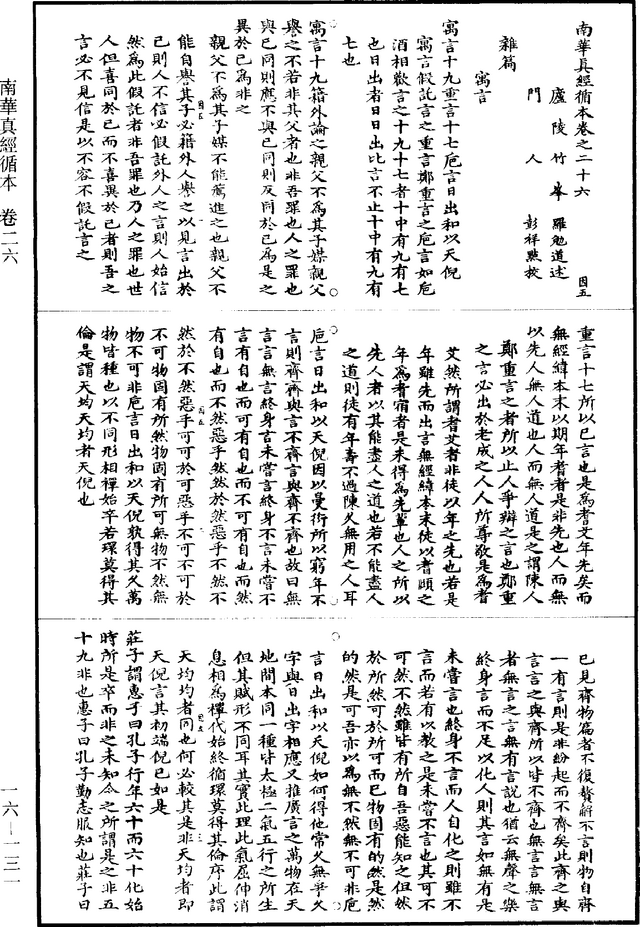 南華真經循本卷之二十六
因五
廬陵竹峯羅勉道述
門人彭祥點校
雜篇
寓言
寓言十九重言十七巵言日出和以天倪
寓言假託言之重言鄭重言之巵言如巵
酒相歡言之十九十七者十中有九有七
也日出者日日出比言不止十中有九有
七也
寓言十九籍外論之親父不爲其子媒親父
譽之不若非其父者也非吾罪也人之罪也
與已同則應不與已同則反同於已爲是之
異於已爲非之
親父不爲其子媒不能薦進之也親父不
能自譽其子必藉外人譽之以見言出於
已則人不信必假託外人之言則人始信
然爲此假託者非吾罪也乃人之罪也世
人但喜同於已而不喜異於已者則吾之
言必不見信是以不容不假託言之
重言十七所以已言也是爲耆艾年先矣而
無經緯本末以期年耆者是非先也人而無
以先人無人道也人而無人道是之謂陳人
鄭重言之者所以止人爭辯之言也鄭重
之言必出於老成之人人所尊敬是爲耆
艾然所謂耆艾者非徒以年之先也若是
年雖先而出言無經緯本末徒以耆頤之
年爲耆宿者是未得爲先輩也人之所以
先人者以其能盡人之道也若不能盡人
之道則徒有年壽不過陳久無用之人耳
巵言日出和以天倪因以曼衍所以窮年不
言則齊齊與言不齊言與齊不齊也故曰無
言言無言終身言未嘗言終身不言未嘗不
言有自也而可有自也而不可有自也而然
有自也而不然惡乎然然於然惡乎不然不
然於不然惡乎可可於可惡乎不可不可於
不可物固有所然物固有所可無物不然無
物不可非巵言日出和以天倪孰得其久萬
物皆種也以不同形相禪始卒若環莫得其
倫是謂天均天均者天倪也
已見齊物篇者不復贅解不言則物自齊
一有言則是非紛起而不齊矣此齊之與
言言之與齊所以皆不齊也無言言無言
者無言之言無有言說也猶云無聲之樂
終身言而不足以化人則其言如無有是
未嘗言也終身不言而人自化之則雖不
言而若有以教之是未嘗不言也其可不
可然不然雖皆有所自吾惡能知之但然
於所然可於所可而已物固有的然是然
的然是可吾亦以爲無不然無不可非巵
言日出和以天倪如何得他常久無爭久
字與日出字相應又推廣言之萬物在天
地間本同一種皆太極二氣五行之所生
但其賦形不同耳其實此理此氣屈伸消
息相爲禪代始終循環莫得其倫序此謂
天均均者同也何必較其是非天均者即
天倪言其初端倪已如是
莊子謂惠子曰孔子行年六十而六十化始
時所是卒而非之未知今之所謂是之非五
十九非也惠子曰孔子勤志服知也莊子曰
南華真經循本 卷二六
一六—一三一